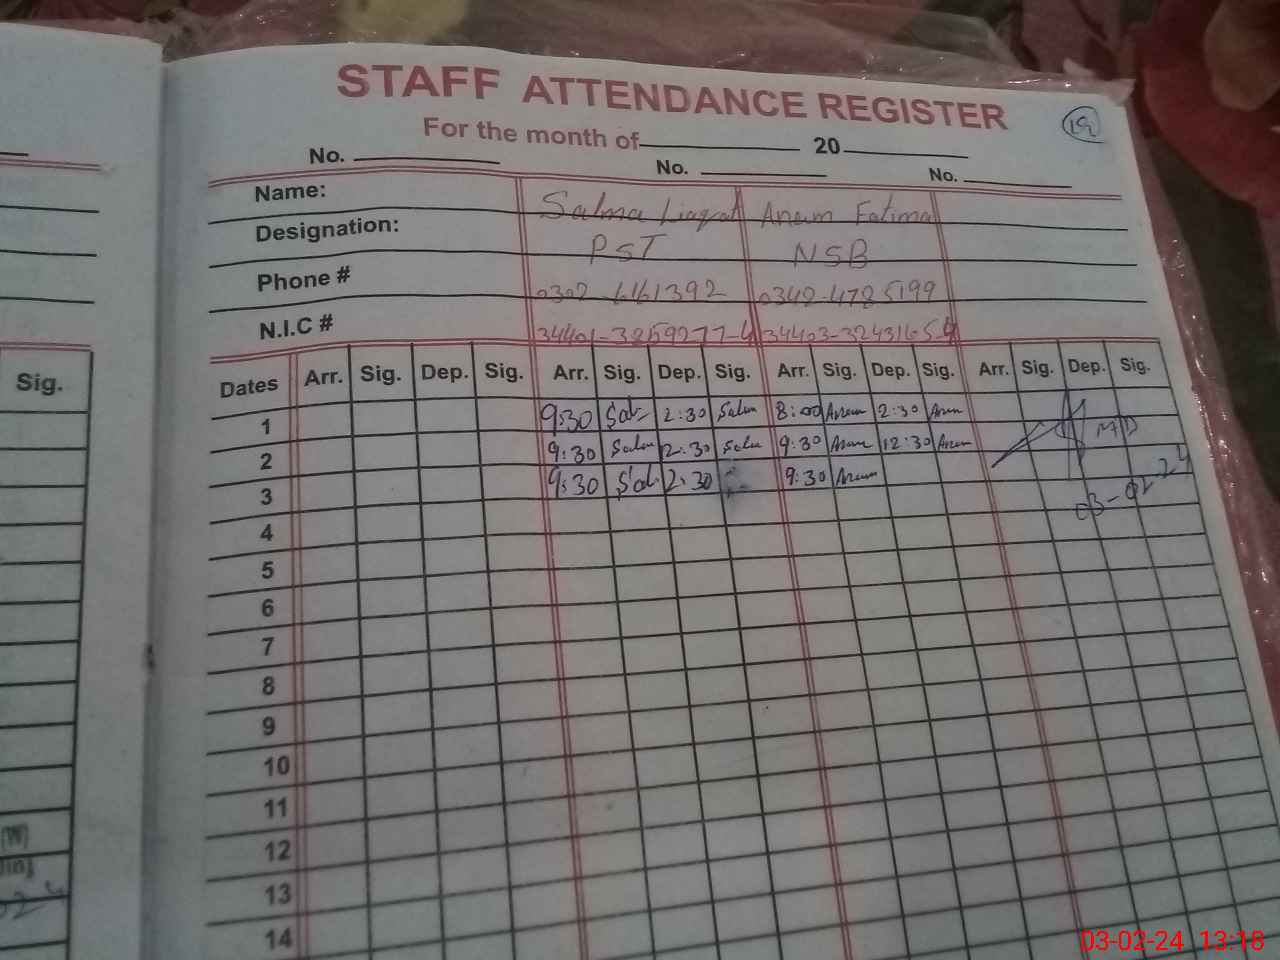 STAFF ATTENDANCE REGISTER
19
For the month of 20
No. No. No.
Name: Salma Liaqat Anam Fatima
Designation: PST NSB
Phone # 0302-6161392 0342-4785199
N.I.C # 34401-3859277-4 34403-3243165-4
Sig.
Dates Arr. Sig. Dep. Sig. Arr. Sig. Dep. Sig. Arr. Sig. Dep. Sig. Arr. Sig. Dep. Sig.
1 9:30 Sal 2:30 Salm 8:00 Anam 2:30 Anam
2 9:30 Salm 12:30 Salm 9:30 Anam 12:30 Anam
MD
3 9:30 Sal 2:30 9:30 Anam
03-02-24
4
5
6
7
8
9
10
11
12
13
14
(W)
03-02-24 13:18